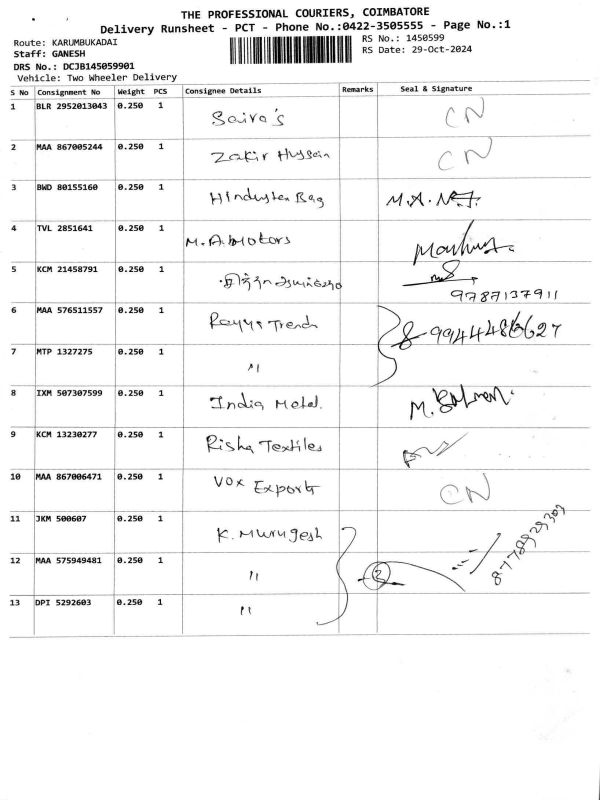 THE PROFESSIONAL COURIERS, COIMBATORE
Delivery Runsheet - PCT - Phone No.:0422-3505555 - Page No.:1
Route: KARUMBUKADAI
RS No.: 1450599
Staff: GANESH
RS Date: 29-Oct-2024
DRS No.: DCJB145059901
Vehicle: Two Wheeler Delivery
S No Consignment No Weight PCS Consignee Details Remarks Seal & Signature
1 BLR 2952013043 0.250 1 Saira's CN
2 MAA 867005244 0.250 1 Zakir Hussain CN
3 BWD 80155160 0.250 1 Hindustan Bag M.A.
4 TVL 2851641 0.250 1 M.A.Motors
5 KCM 21458791 0.250 1
9787137911
6 MAA 576511557 0.250 1 Trend
7 MTP 1327275 0.250 1 "
8 IXM 507307599 0.250 1 India Metal. M.
9 KCM 13230277 0.250 1 Risha Textiles
10 MAA 867006471 0.250 1 Vox Exports CN
11 JKM 500607 0.250 1 K. Murugesh
12 MAA 575949481 0.250 1 " 2
13 DPI 5292603 0.250 1 "